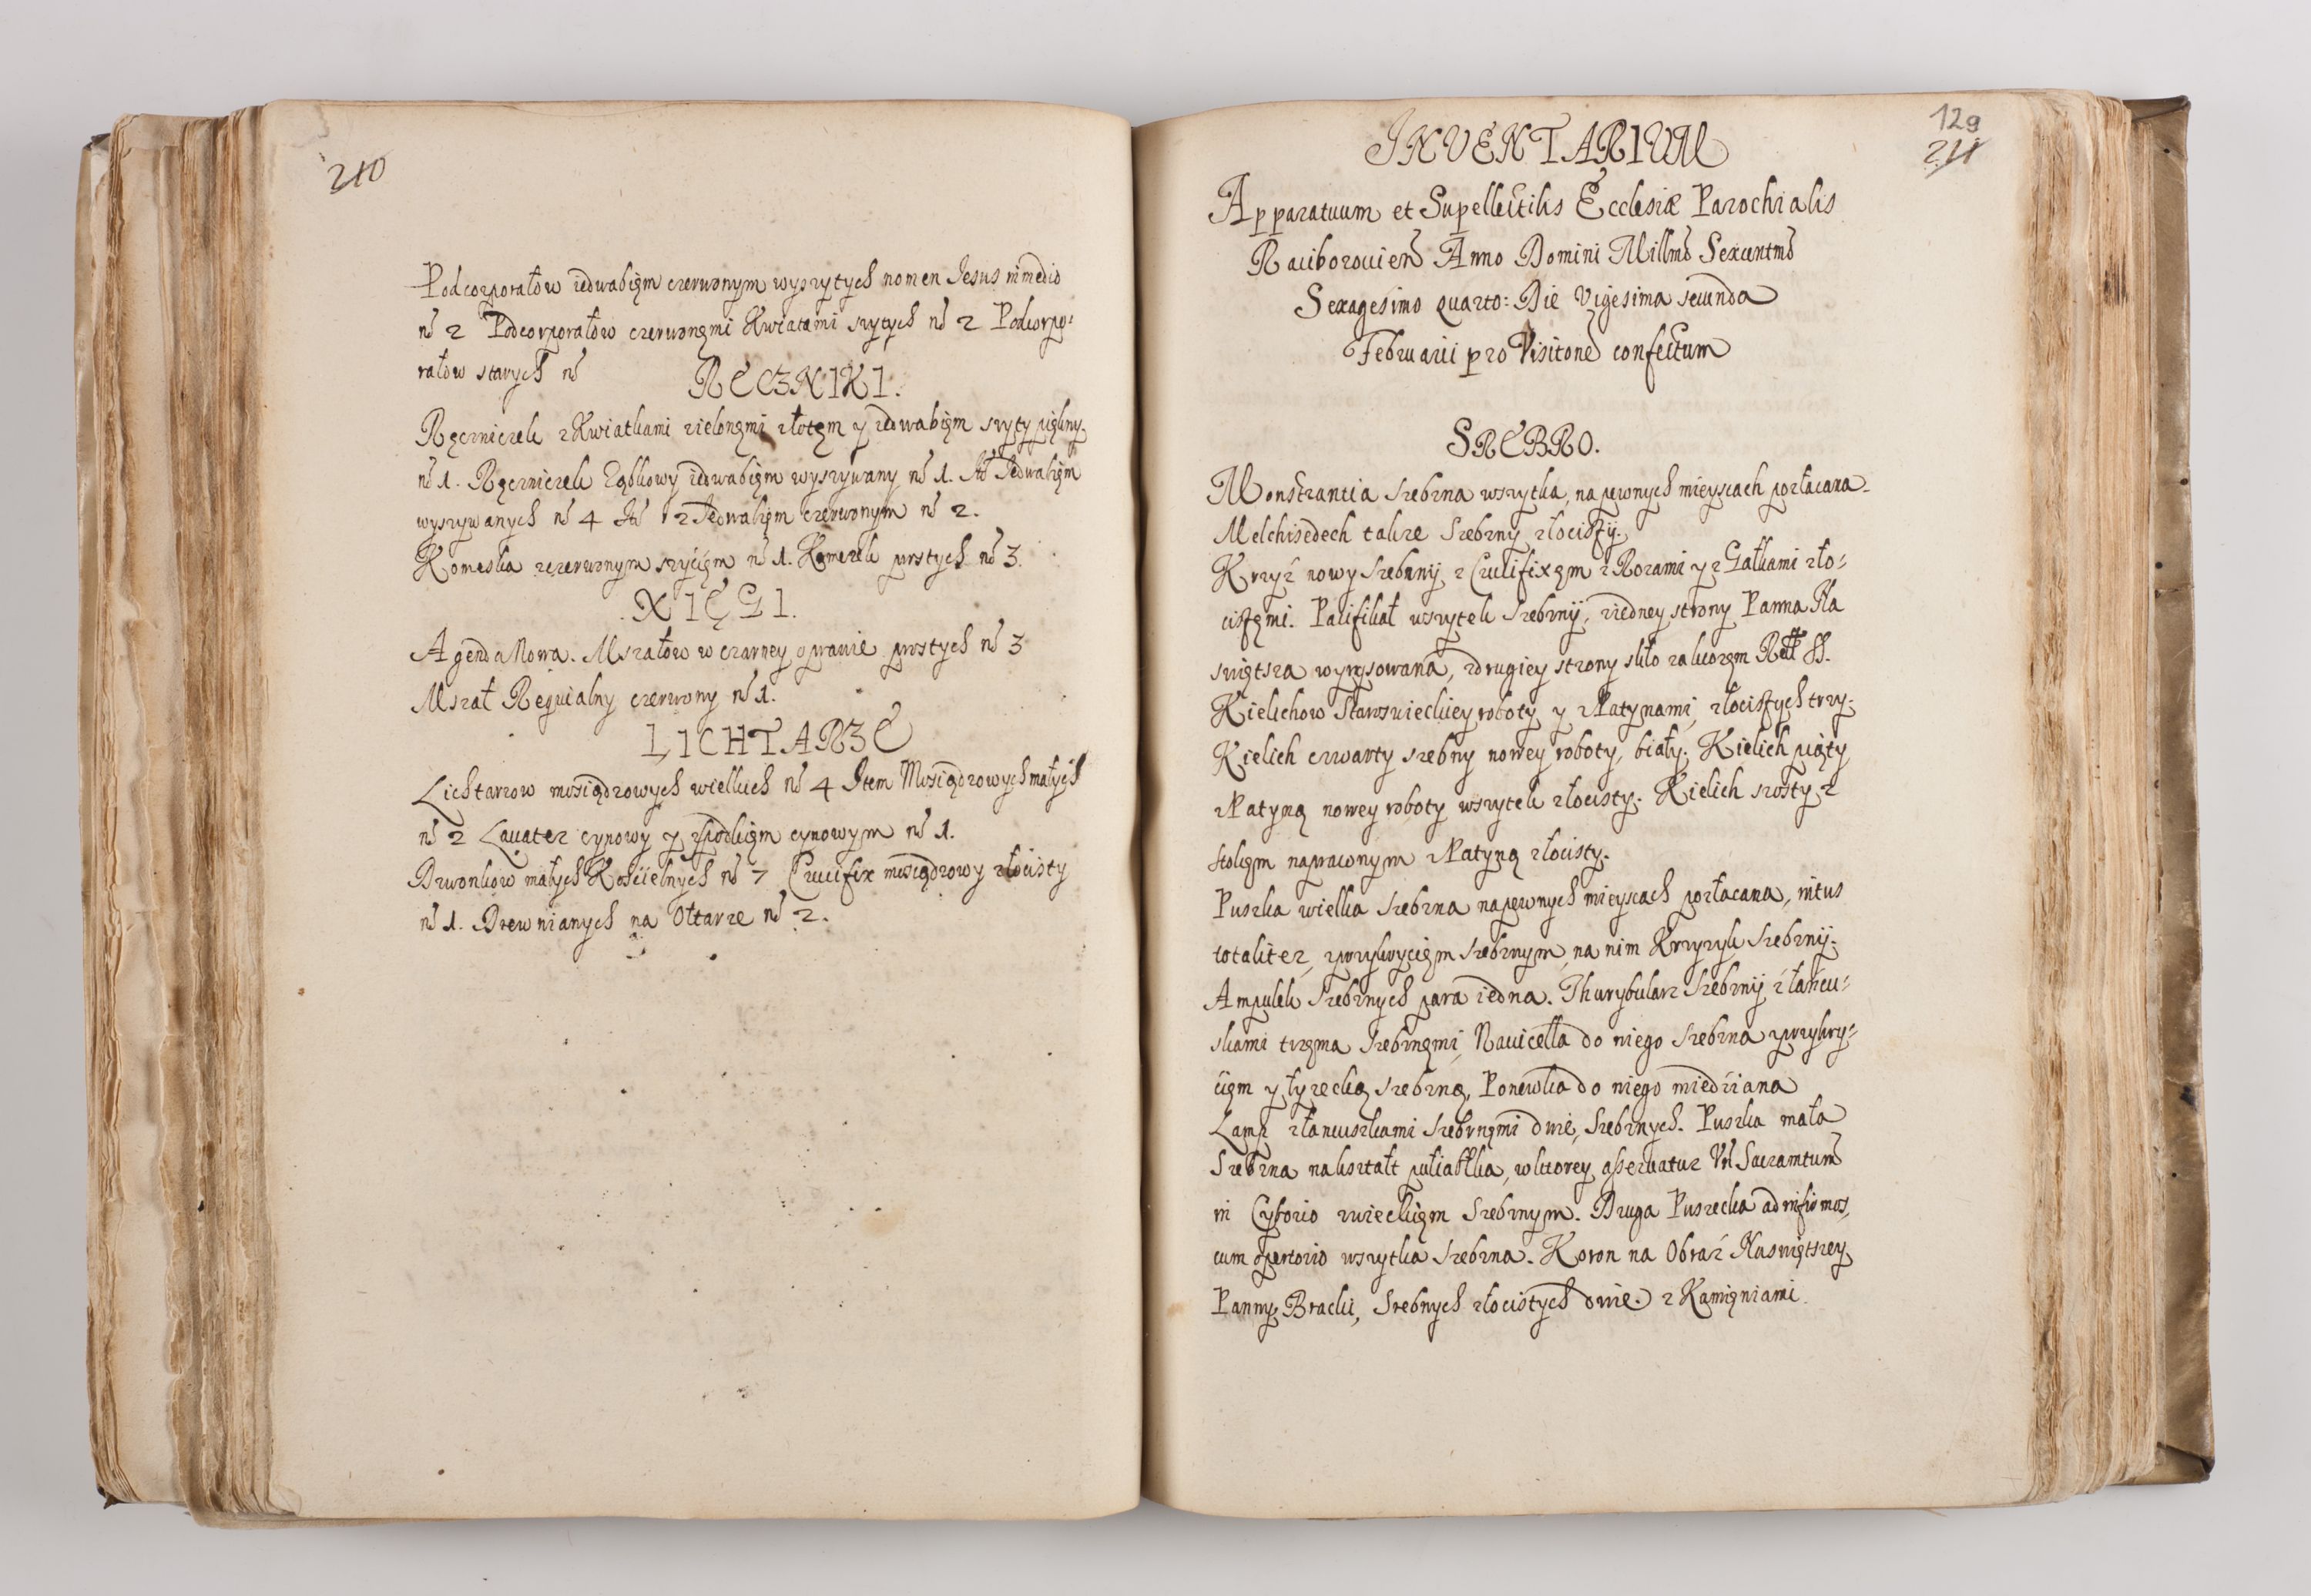 210
Podcorporałow iedwabięm czerwonym wyszytych nomen Jesus in medio
nō 2 Podcorporałow czerwonęmi Kwiatami szytych nō 2 Podcorpo:
rałow starych nō
RĘCZNIKI.
Ręczniczek z Kwiatkami zielonęmi złotęm y iedwabięm szyty piękny.
nō 1. Ręczniczek Ząbkowy iedwabięm wyszywany nō 1. Jedwabięm
wyszywanych nō 4 z Jedwabięm czerwonym nō 2.
Komeszka z czerwonym szycięm nō 1. Komezek prostych nō 3.
XIĘGI.
Agenda Nowa. Mszałow w czarney oprawie prostych nō 3
Mszał Requialny czerwony nō 1.
LICHTARZE
Lichtarzow mosiądzowych wielkich nō 4 Item Mosiądzowych małych
nō 2 Lavater cynowy y zspodkięm cynowym nō 1.
Dzwonkow małych Kościelnych nō 7 Crucifix mosiądzowy złocisty
nō 1. Drewnianych na Ołtarze nō 2.
129
211
INVENTARIUM
Apparatuum et Supellectilis Ecclesiæ Parochialis
Raciborouien Anno Domini Millmō Sexcentmō
Sexagesimo quarto: Die Vigesima secunda
Februarii pro Visitone confectum
SREBRO.
Monstrantia Srebrna wszytka, na pewnych mieyscach pozłacana
Melchisedech takze Srebrny złocisty.
Krzyź nowy Srebrnÿ z Crucifixęm z Rozami y z Gałkami zło:
cistęmi. Pacifikał wszytek Srebrnÿ, ziedney strony Panna Na
swiętsza wyrysowana, zdrugiey strony skło zaktoręm Rell SS.
Kielichow Staroswieckiey roboty y zPatynami, złocistych trzy.
Kielich czwarty srebny nowey roboty, biały. Kielich piąty
zPatyną nowey roboty wszytek złocisty. Kielich szosty z
stolcęm naprawnym zPatyną złocisty.
Puszka wielka Srebrna napewnych mieyscach pozłacana, intus
totaliter, zprzykrycięm Srebrnym, na nim Krzyzyk Srebrnÿ.
Ampulek Srebrnych para iedna. Thurybularz Srebrnÿ złańcu:
skami trzęma Srebrnęmi, Nauicella do niego Srebrna zprzykry:
cięm y łyzecką srebrną, Ponewka do niego miedźiana
Lamp złancuszkami Srebrnęmi dwie, Srebrnych. Puszka mała
Srebrna nakształt puliałka, wktorey asseruatur Vn Sacramtum
in Cyborio zwieckięm Srebrnym. Druga Puszecka ad infirmos,
cum opertorio wszytka Srebrna. Koron na Obraź Naswiętszey
Panny Bracki, Srebnych złocistych dwie. z Kamięniami